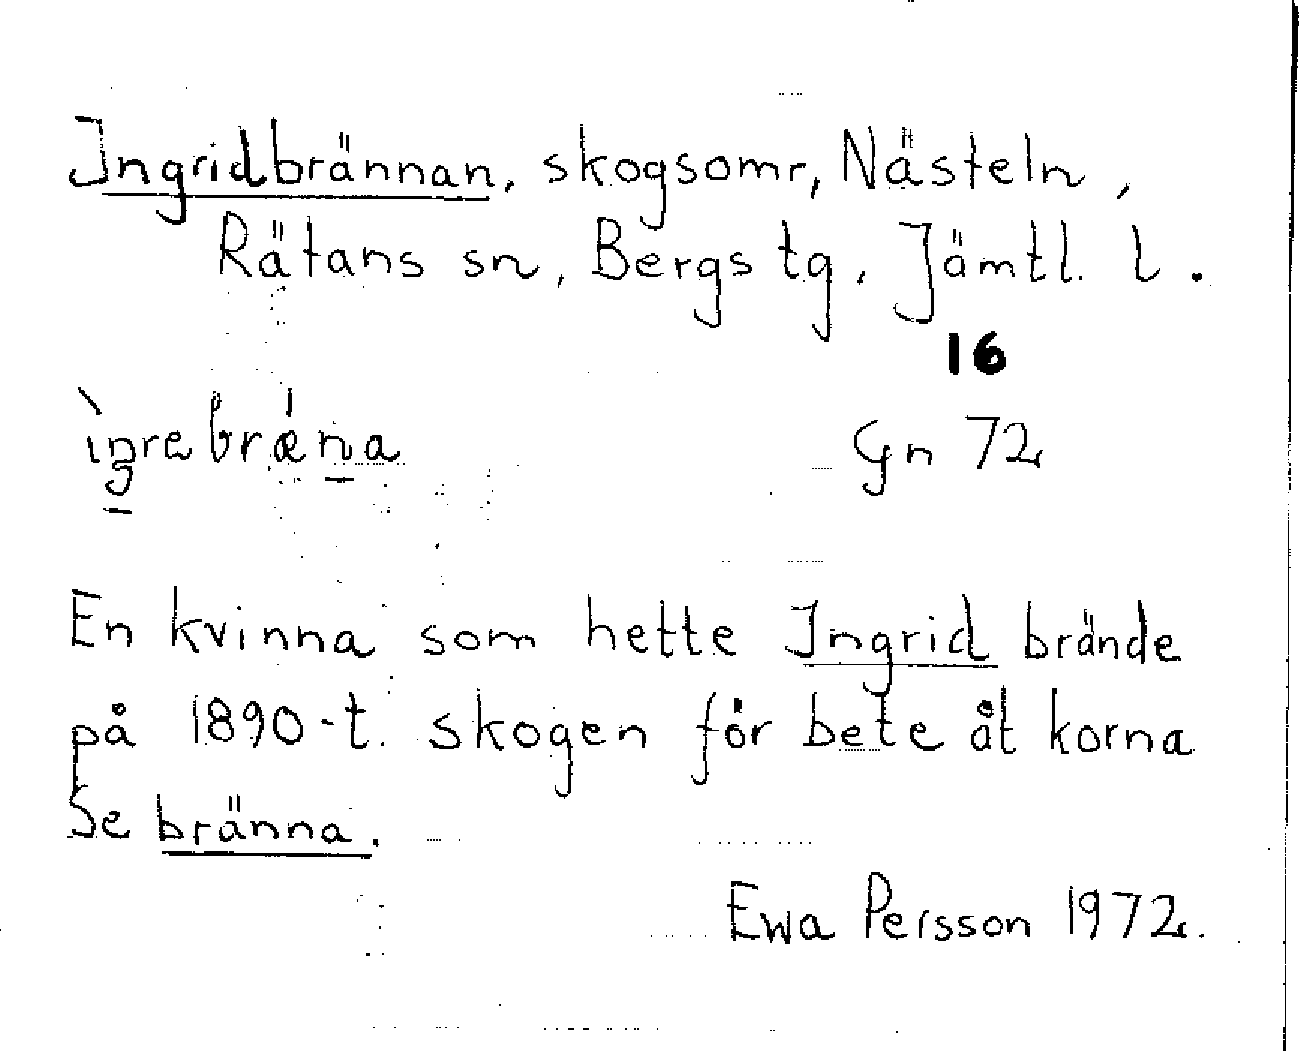 Ingridbrännan, skogsomr, Nästeln,
Rätans sn, Bergs tg, Jämtl. l.
16
ìŋrebrǽna Gn 72
En kvinna som hette Ingrid brände
på 1890-t. skogen för bete åt korna
Se bränna.
Ewa Persson 1972.